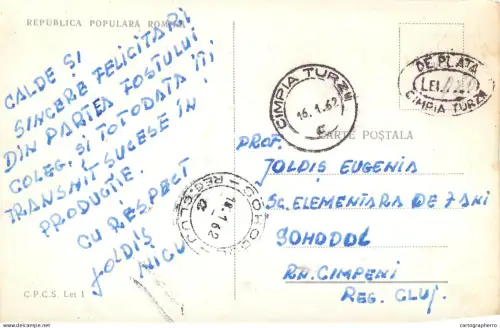 REPUBLICA POPULARA ROMÎNĂ
CALDE ȘI
SINCERE FELICITĂRI
DIN PARTEA FOSTULUI
COLEG, ȘI TOTODATĂ ÎȚI
TRANSMIT SUCESE ÎN
PRODUCȚIE.
CU RESPECT
JOLDIȘ
NICU
C.P.C.S. Lei 1
CIMPIA TURZII
16.1.62
DE PLATA
LEI
CIMPIA TURZII
CARTE POȘTALA
PROF.
JOLDIȘ EUGENIA
SC. ELEMENTARA DE 7 ANI
SOHODOL
RN. CIMPENI
REG. CLUJ.
SOHODOL
REG. CLUJ
18.1.62
cartographero